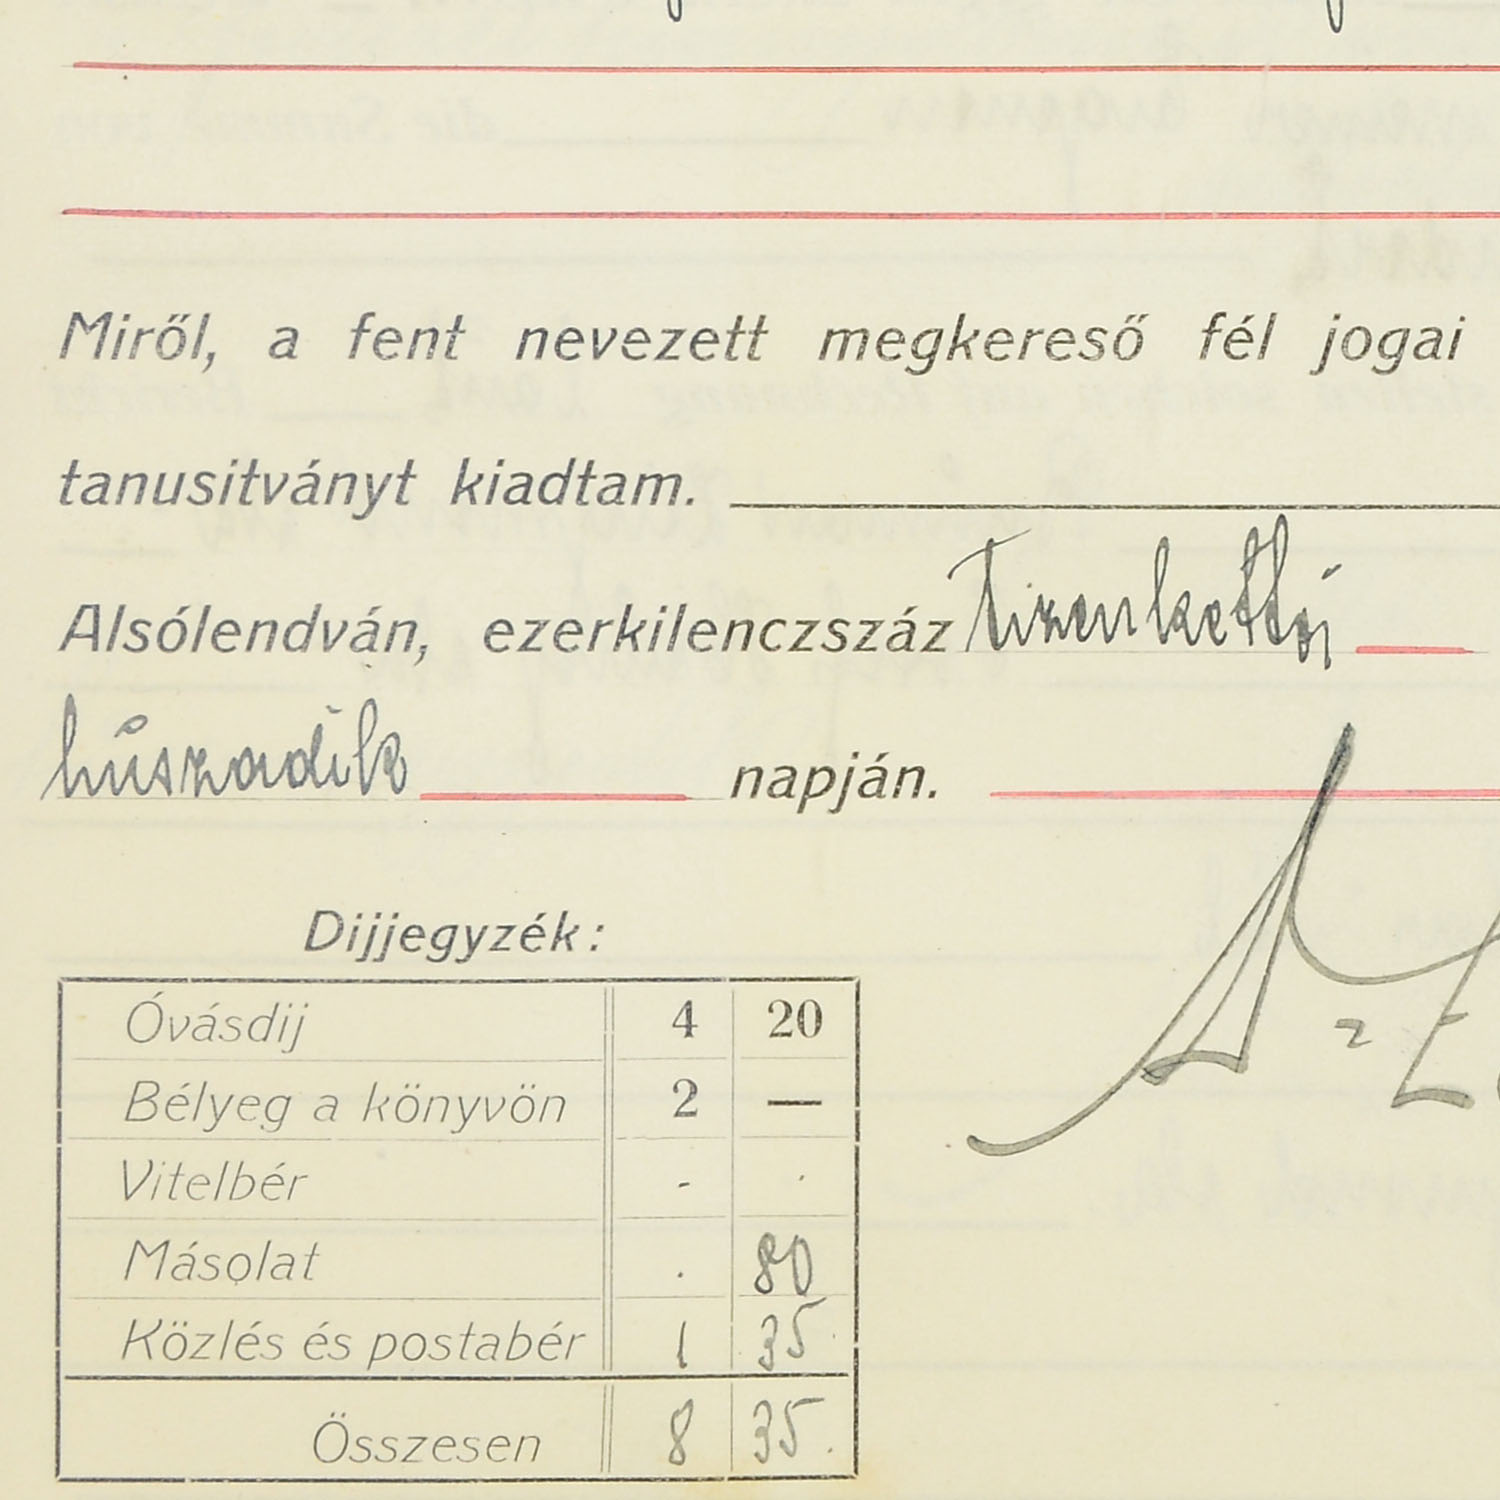 Miről, a fent nevezett megkereső fél jogai
tanusitványt kiadtam.
Alsólendván, ezerkilenczszáz tizenkettő
húszadik napján.
Dijjegyzék:
Óvásdij 4 20
Bélyeg a könyvön 2 —
Vitelbér - .
Másolat . 80
Közlés és postabér 1 35
Összesen 8 35.